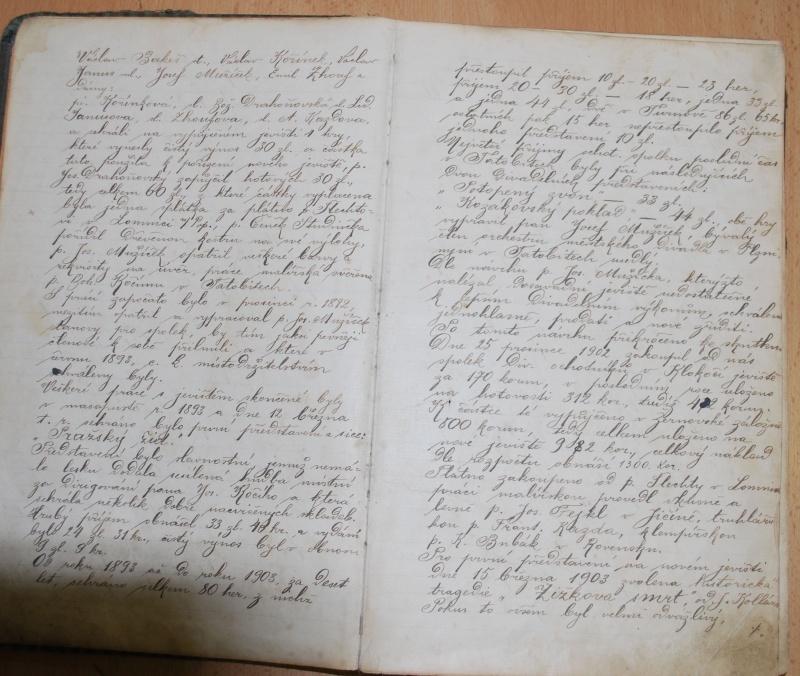 Václav Bakeš t., Václav Kořínek, Václav
Janus ml., Josef Mužíček, Emil Zhouf a
dámy:
pí. Kořínková, sl. Bož. Drahoňovská, sl. Lid.
Janusova, sl. Zhoufova, sl. A. Kazdova.
a sehráli na vypůjčeném jevišti 1 hry,
které vynesly čistý výnos 30 zl. a částka
tato použita k pořízení nového jeviště, p.
Jos. Drahoňovský zapůjčil hotových 30 zl.,
tedy celkem 60 zl., z které částky vyplacena
byla jedna splátka za plátno p.
v Lomnici n/P., p. Čeněk Studnička
pořídil Dřevěnou kostru na své výlohy,
p. Jos. Mužíček opatřil veškeré barvy a
rekvisity na úvěr, práce malířská svěřena
p. Boh. Kočímu v Tatobitech.
S prací započato bylo v prosinci r. 1892,
mezitím opatřil a vypracoval p. Jos. Mužíček
stanovy pro spolek, by tím jaksi pevněji
členové k sobě přilnuli a které v
únoru 1893, c. k. místodržitelstvím
schváleny byly.
Veškeré práce s jevištěm skončené byly
v masopustě r. 1893 a dne 12 března
t. r. sehráno bylo první představení a sice:
„Pražský žid.“
Představení bylo slavnostní jemuž nemá-
lo lesku dodala seslená hudba místní
za dirigování pana Jos. Kočího a která
sehrála několik dobře nacvičených skladeb.
Hrubý příjem obnášel 33 zl. 40 kr. a vydání
bylo 24 zl. 31 kr., čistý výnos byl v obnosu
9 zl. 9 kr.
Od roku 1893 až do roku 1903. za deset
let, sehráno celkem 80 her, z nichž
přestoupil příjem 10 zl. – 20 zl. – 23 her,
příjem 20 – 30 zl. – 18 her, jedna 33 zl.
a jedna 44 zl., dvě v Turnově 86 zl. 65 kr.
ostatních pak 15 her nepřestoupilo příjem
jednoho představení 10 zl.
Největší příjmy ochot. spolku poslední čas
v Tatobitech byly při následujících
dvou Divadelních představeních:
„Potopený zvon“ – 33 zl.
„Kozákovský poklad“ – 44 zl., obě hry
vypravil pan Josef Mužíček, bývalý
člen orchestru městského divadla v Plzni
nyní v Tatobitech usedlý.
Dle návrhu p. Jos. Mužíčka, kterýžto
nalézal, dosavadní jeviště nedostatečné
k čelným Divadelním výkonům, schváleno
jednohlasně, prodati a nové zříditi.
Po tomto návrhu překročeno ke skutkem.
Dne 25 prosince 1902 zakoupil od nás
spolek Div. ochotníků v Klokočí jeviště
za 170 korun, v posledním roce uloženo
na hotovosti 312 kor., tudíž korun.
K částce té vypůjčeno v Žernovské záložně
500 korun, tedy celkem uloženo na
nové jeviště 982 kor., celkový náklad
dle rozpočtu obnáší 1300 kor.
Plátno zakoupeno od p. v Lomnici
práci malířskou provedl
p. Jos. Fejkl v Jičíně, truhlářs-
kou p. Frant. Kazda, klempířskou
p. K. Bubák v Rovensku.
Pro první představení na novém jevišti
dne 15 března 1903 zvolena historická
tragedie „Žižkova smrt,“ od J. Kollára.
Pokus to ovšem byl velmi odvážlivý,
4.